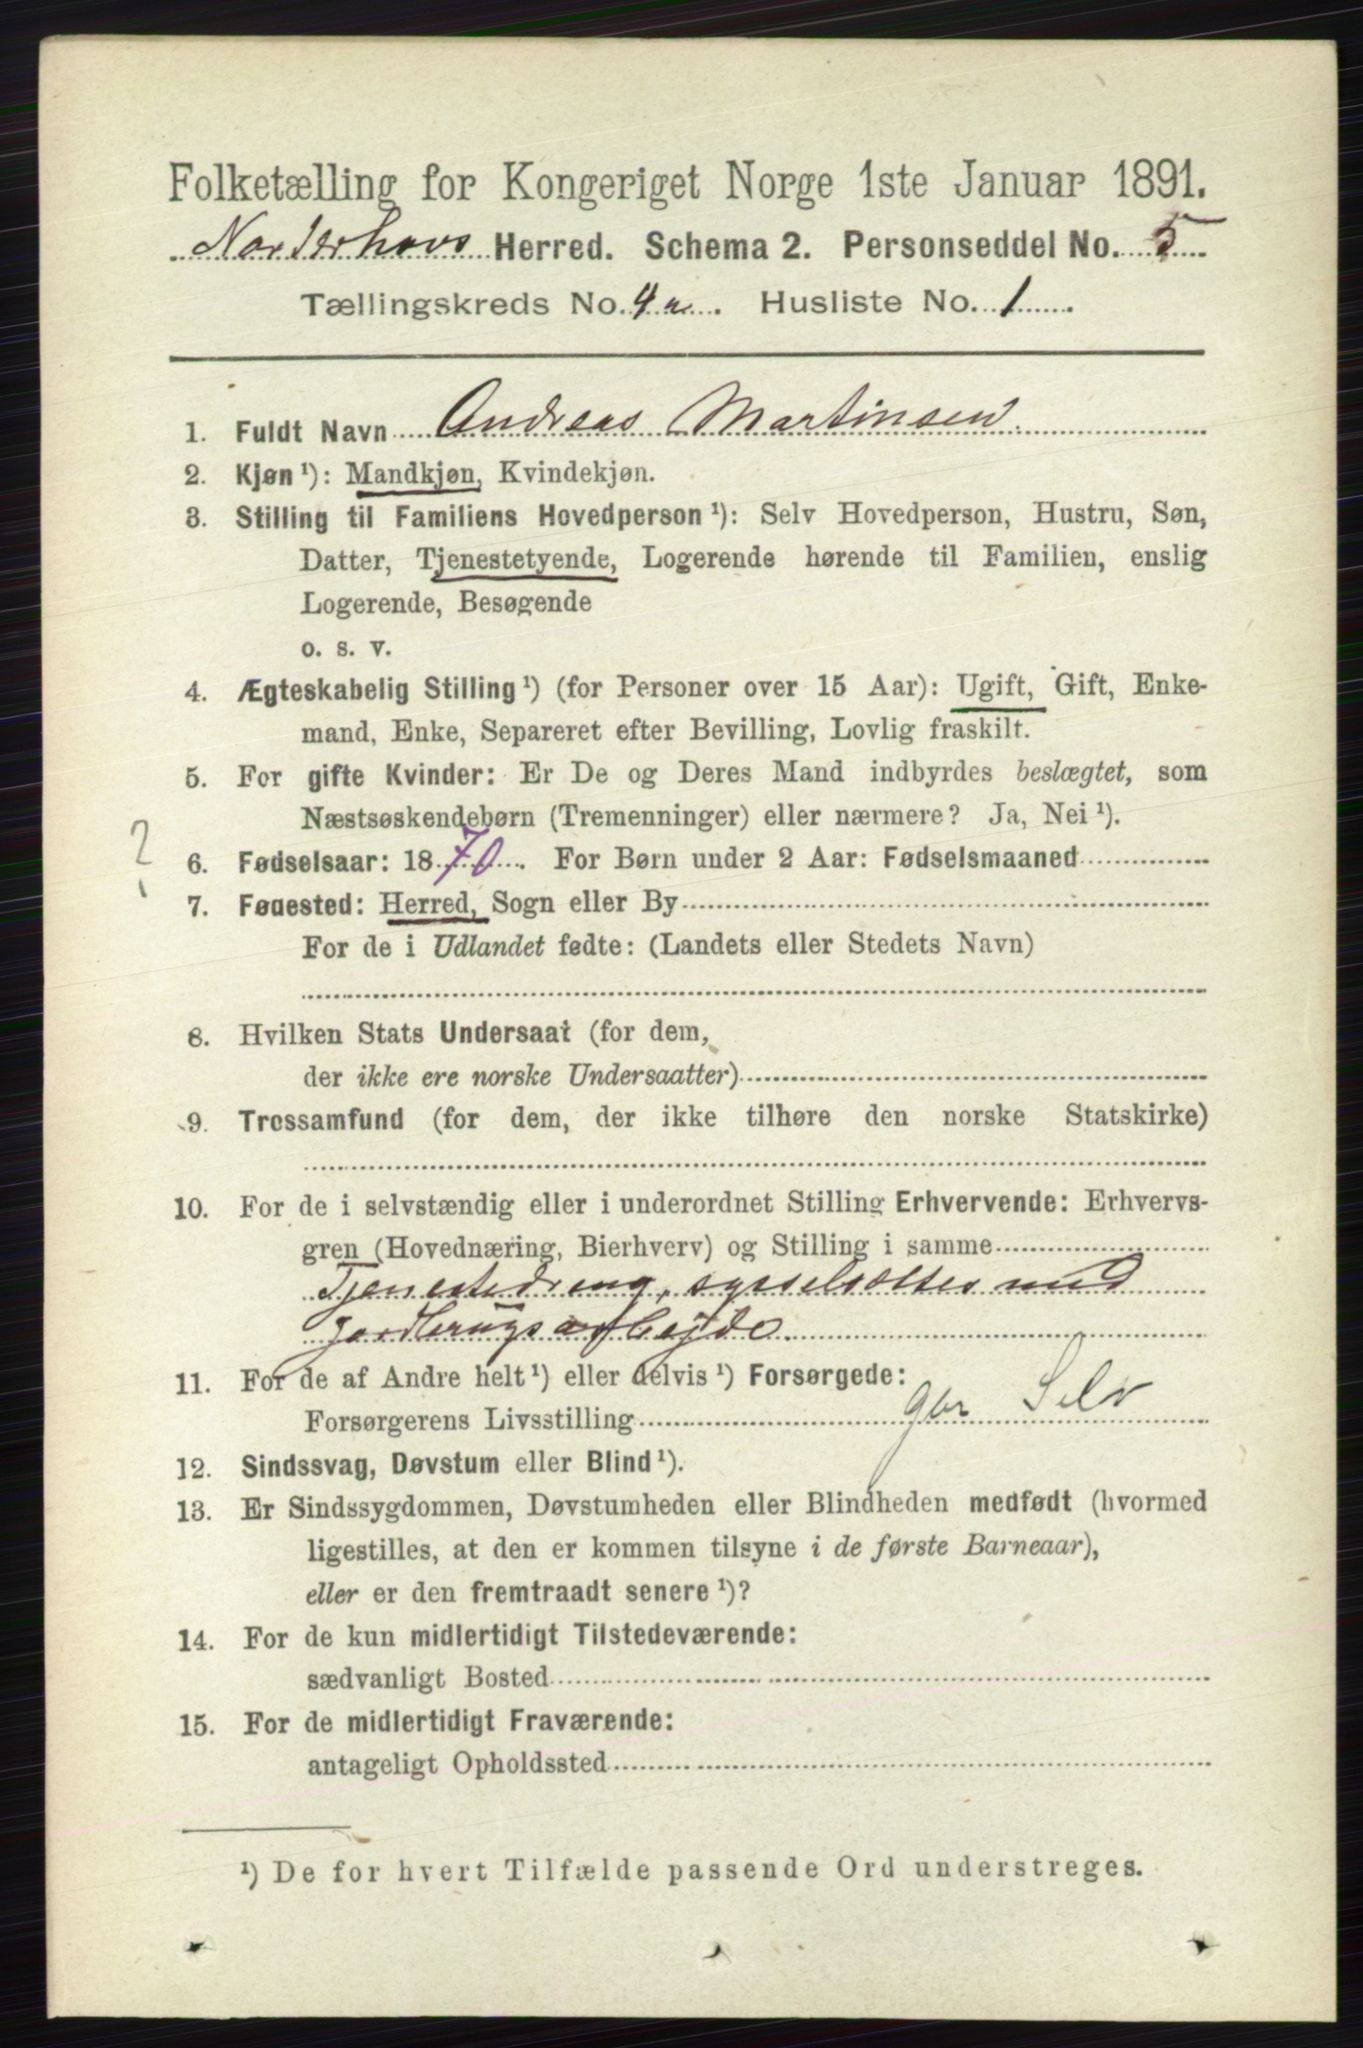 Folketælling for Kongeriget Norge 1ste Januar 1891.
Norderhovs Herred. Schema 2. Personseddel No. 5
Tællingskreds No. 4a. Husliste No. 1
1. Fuldt Navn Andreas Martinsen
2. Kjøn ¹): Mandkjøn, Kvindekjøn.
3. Stilling til Familiens Hovedperson ¹): Selv Hovedperson, Hustru, Søn,
Datter, Tjenestetyende, Logerende hørende til Familien, enslig
Logerende, Besøgende
o. s. v.
4. Ægteskabelig Stilling ¹) (for Personer over 15 Aar): Ugift, Gift, Enke-
mand, Enke, Separeret efter Bevilling, Lovlig fraskilt.
5. For gifte Kvinder: Er De og Deres Mand indbyrdes beslægtet, som
Næstsøskendebørn (Tremenninger) eller nærmere? Ja, Nei ¹).
? 6. Fødselsaar: 1870. For Børn under 2 Aar: Fødselsmaaned
7. Fødested: Herred, Sogn eller By
For de i Udlandet fødte: (Landets eller Stedets Navn)
8. Hvilken Stats Undersaat (for dem,
der ikke ere norske Undersaatter)
9. Trossamfund (for dem, der ikke tilhøre den norske Statskirke)
10. For de i selvstændig eller i underordnet Stilling Erhvervende: Erhvervs-
gren (Hovednæring, Bierhverv) og Stilling i samme
Tjenestedreng, sysselsættes med
jordbrugsarbejde.
11. For de af Andre helt ¹) eller delvis ¹) Forsørgede:
Forsørgerens Livsstilling gbr Selv
12. Sindssvag, Døvstum eller Blind ¹).
13. Er Sindssygdommen, Døvstumheden eller Blindheden medfødt (hvormed
ligestilles, at den er kommen tilsyne i de første Barneaar),
eller er den fremtraadt senere ¹)?
14. For de kun midlertidigt Tilstedeværende:
sædvanligt Bosted
15. For de midlertidigt Fraværende:
antageligt Opholdssted
¹) De for hvert Tilfælde passende Ord understreges.